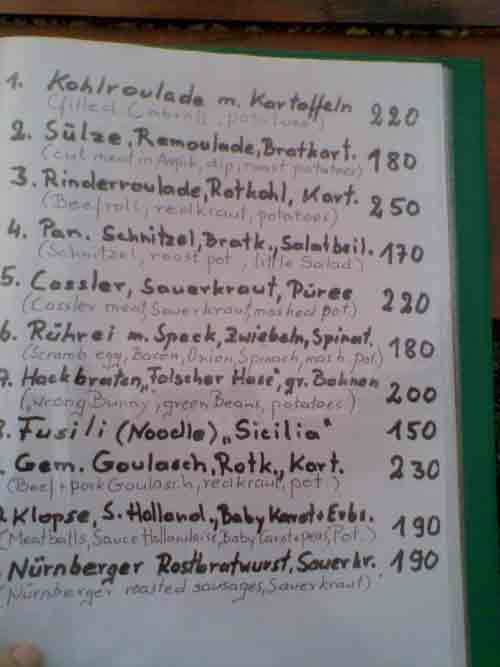 1. Kohlroulade m. Kartoffeln 220
(filled Cabrall, potatoes)
2. Sülze, Remoulade, Bratkart. 180
(cut meat in Aspik, dip, roast potatoes)
3. Rinderroulade, Rotkohl, Kart. 250
(Beefroll, redkraut, potatoes)
4. Pan. Schnitzel, Bratk., Salatbeil. 170
(Schnitzel, roast pot., little Salad)
5. Cassler, Sauerkraut, Püree 220
(Cassler meat, Sauerkraut, mashed pot.)
6. Rührei m. Speck, Zwiebeln, Spinat. 180
(Scramb. egg, Bacon, Onion, Spinach, mash. pot.)
7. Hackbraten „Falscher Hase", gr. Bohnen 200
(„wrong Bunny, green Beans, potatoes)
8. Fusili (Noodle) „Sicilia" 150
. Gem. Goulasch, Rotk., Kart. 230
(Beef + pork Goulasch, redkraut, pot.)
Klopse, S. Holland., Baby Karot + Erbs. 190
(Meatballs, Sauce Hollandaise, baby Carot + peas, Pot.)
. Nürnberger Rostbratwurst, Sauerkr. 190
(Nürnberger roasted sausages, Sauerkraut)